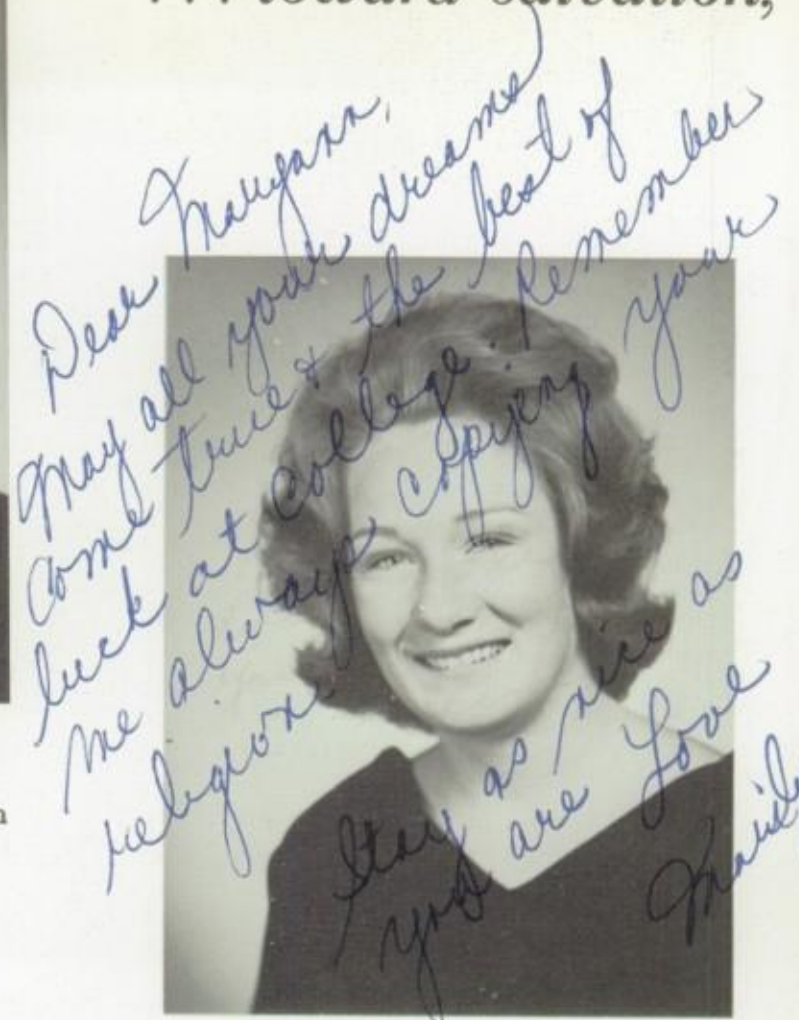 . . . toward salvation,
Dear Maryann,
May all your dreams
come true & the best of
luck at college. Remember
me always copying your
religion.
Stay as nice as
you are Love